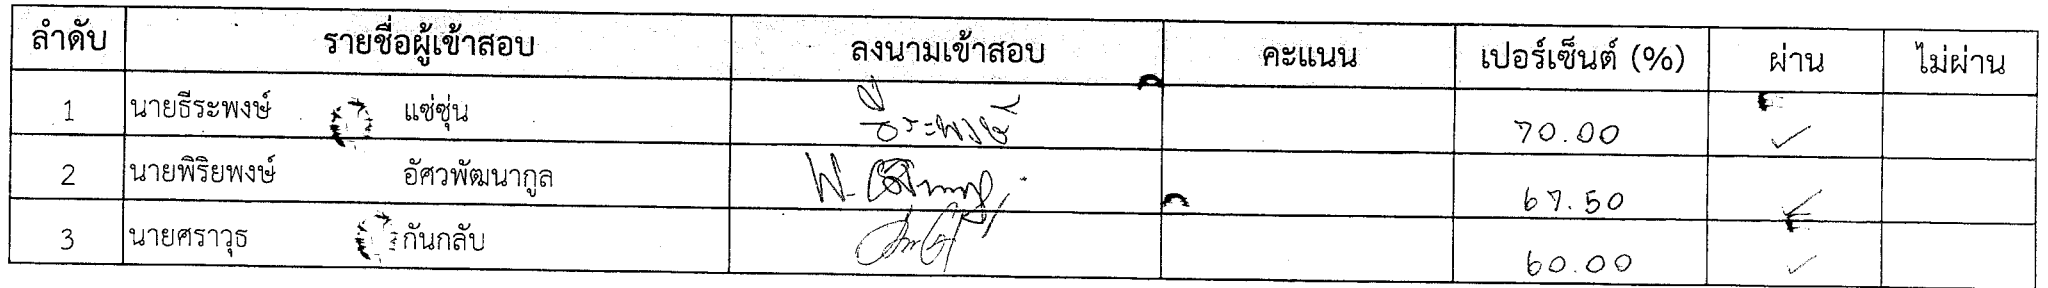 ลำดับ รายชื่อผู้เข้าสอบ ลงนามเข้าสอบ คะแนน เปอร์เซ็นต์ (%) ผ่าน ไม่ผ่าน
1 นายธีระพงษ์ แซ่ซุ่น ธีระพงษ์ 70.00 ✓
2 นายพิริยพงษ์ อัศวพัฒนากูล 67.50 ✓
3 นายศราวุธ กันกลับ 60.00 ✓